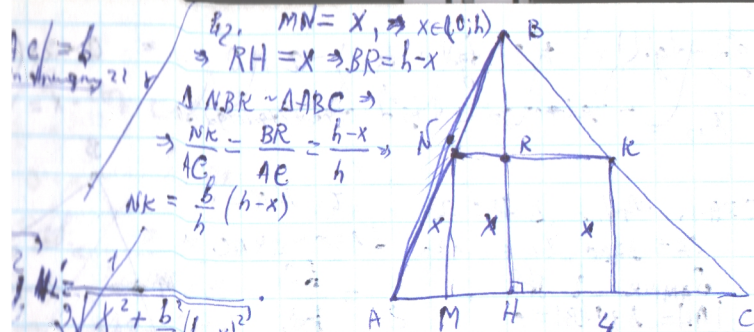 AC/=b
MN = x, ⇒ x∈(0;h)
⇒ RH = x ⇒ BR = h-x
Δ NBK ~ Δ ABC ⇒
⇒ NK/AC = BR/AE = (h-x)/h ⇒
NK = b/h (h-x)
1
2√x² + b²/
B
N
R
K
x
x
x
A
M
H
L
C